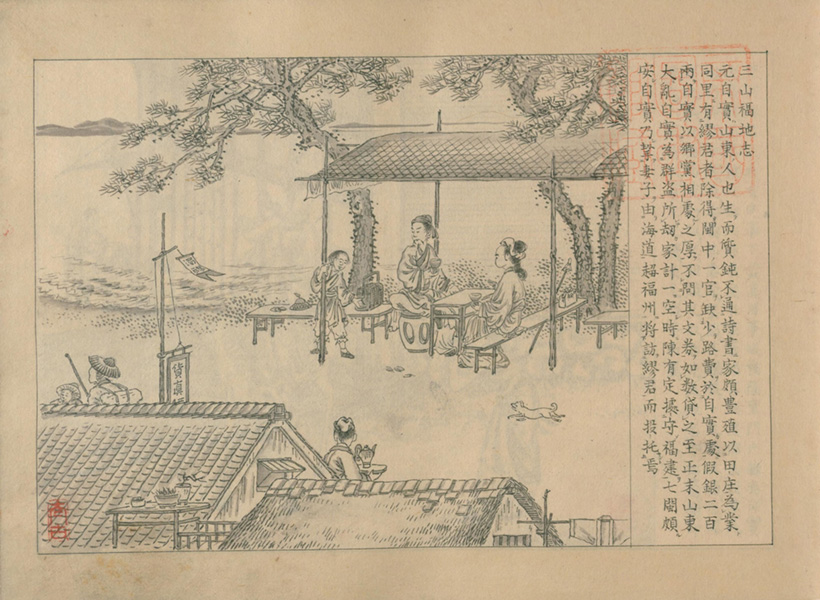 三山福地志
元自實山東人也生而質鈍不通詩書家頗豐殖以田庄為業
同里有繆君者除得閩中一官缺少路費於自實處假銀二百
兩自實以鄉黨相處之厚不問其文券如數貸之至正末山東
大亂自實為群盜所劫家計一空時陳有定據守福建七閩頗
安自實乃挈妻子由海道趨福州將訪繆君而投托焉
貨真